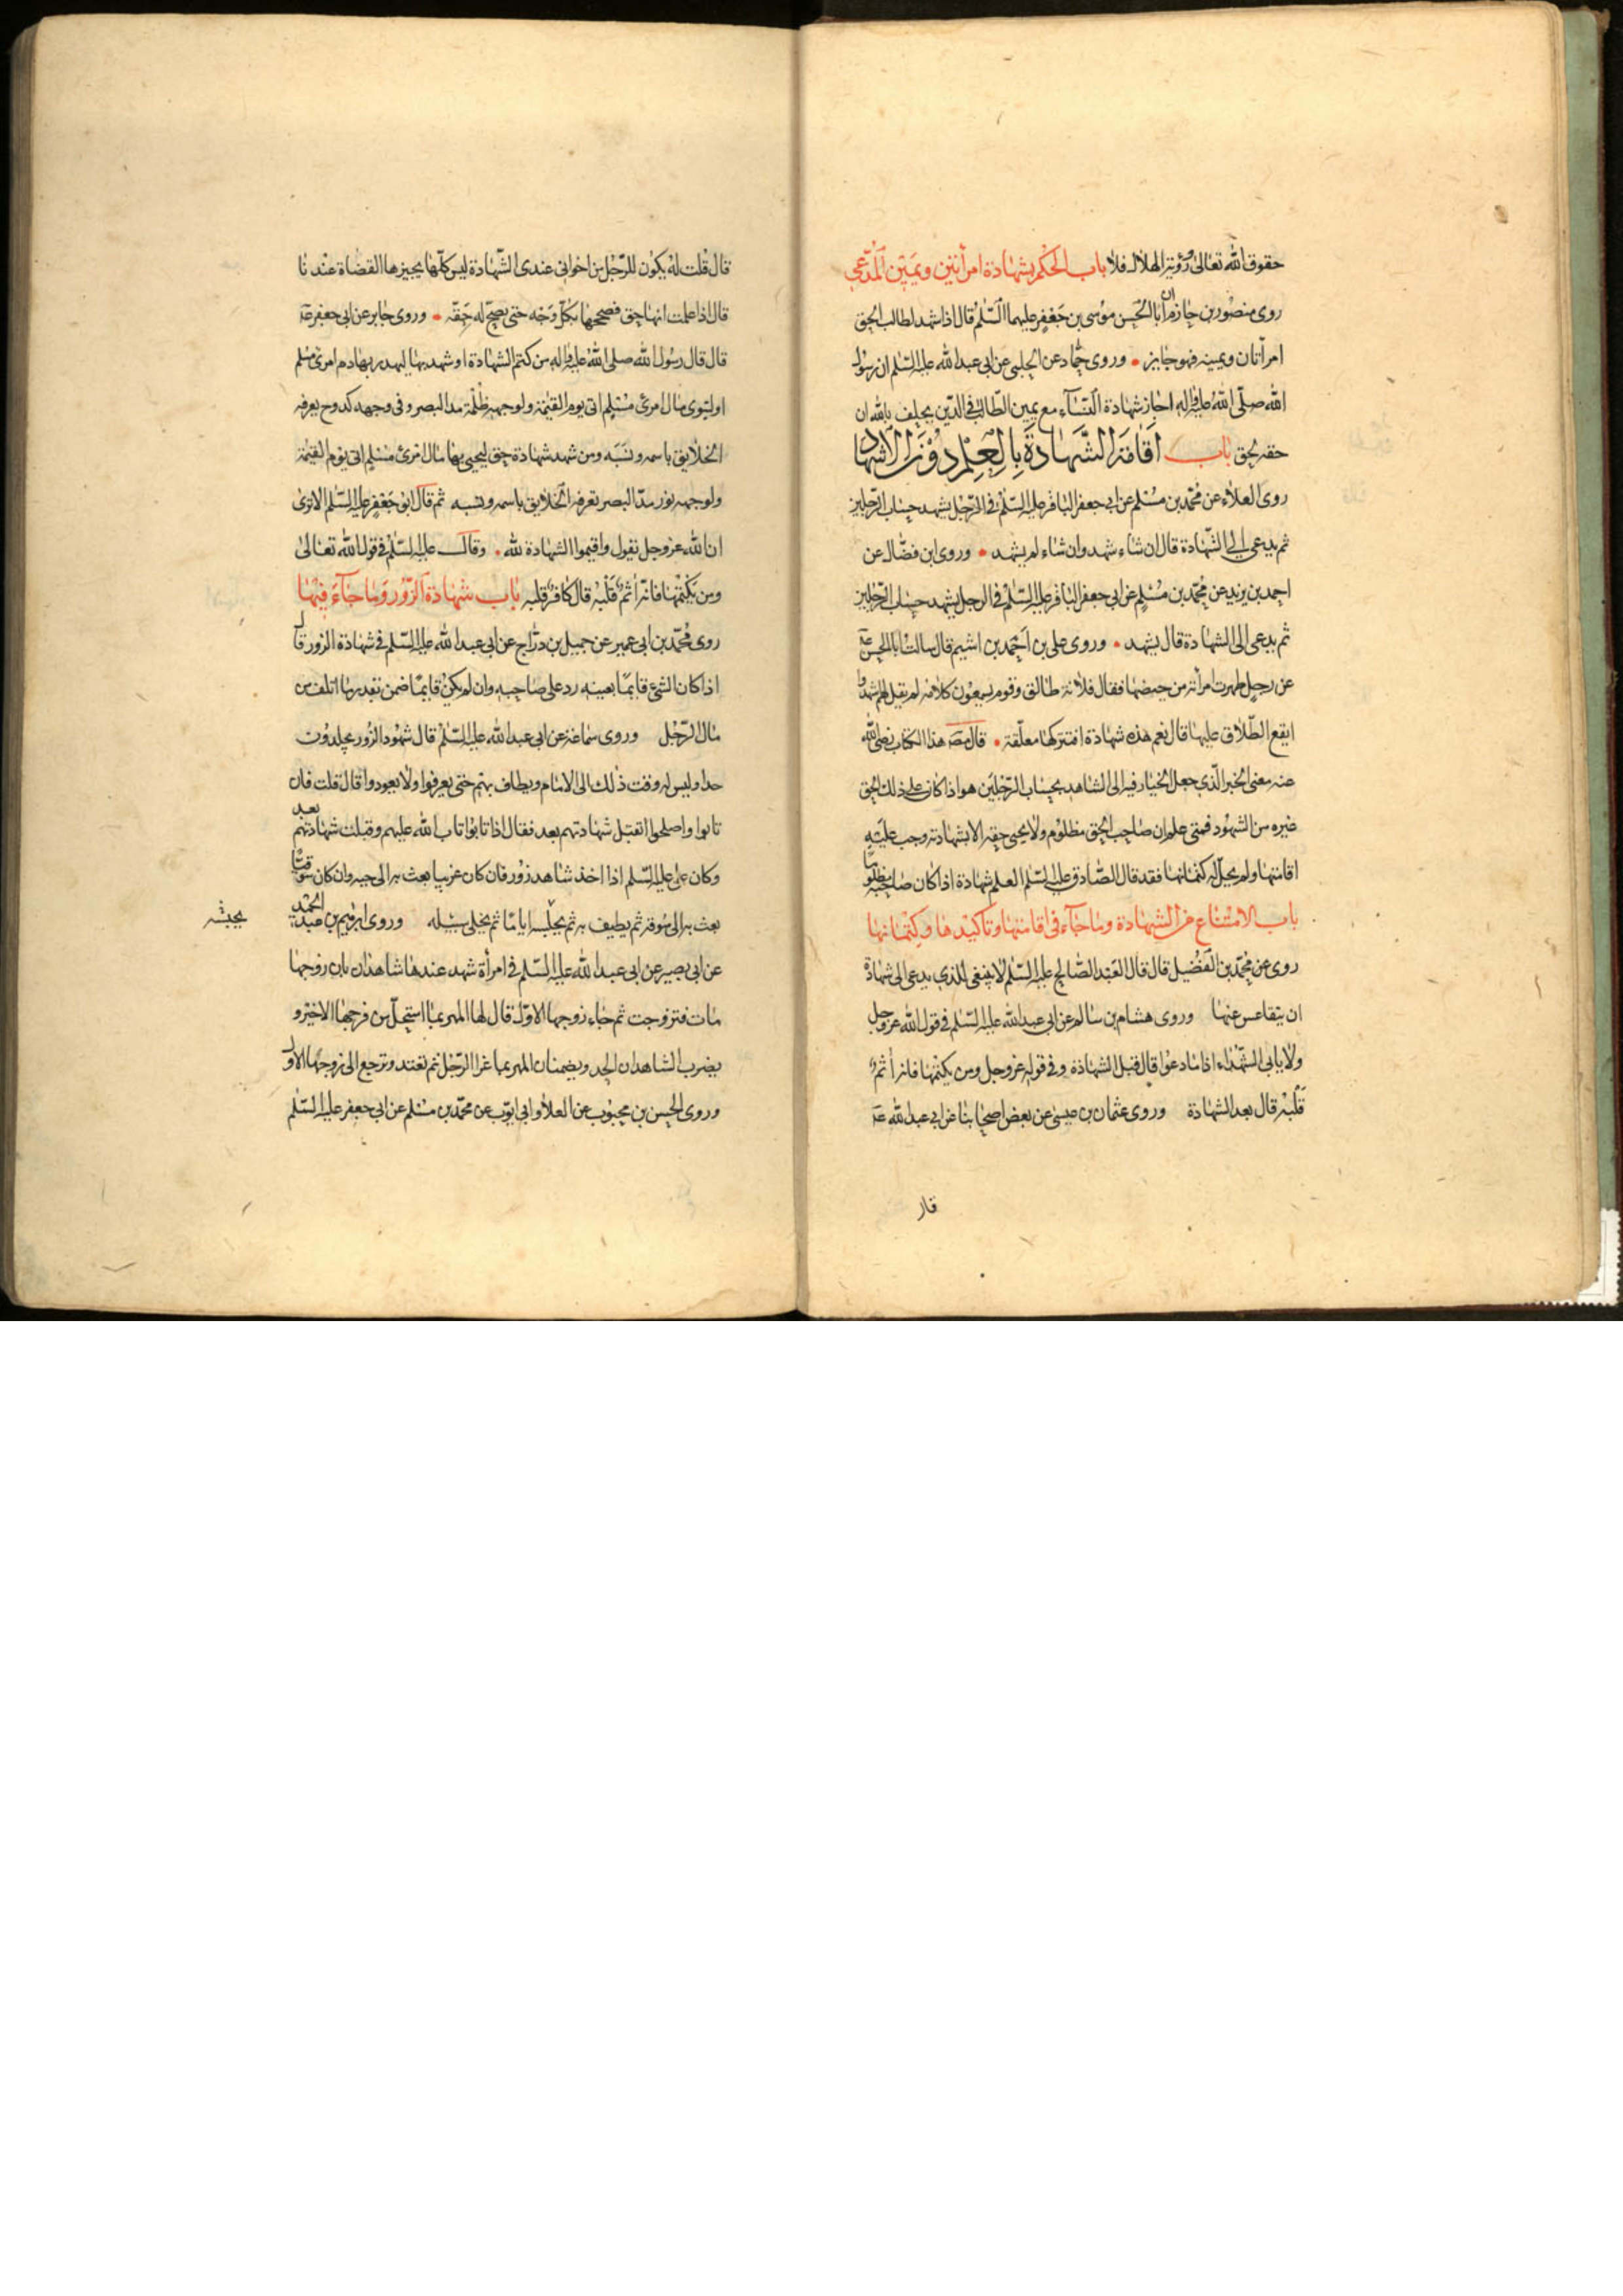 حقوق الله تعالى ورؤية الهلال فلا باب الحكم بشهادة امرأتين ويمين المدعي
روى منصور بن حازم ان ابا الحسن موسى بن جعفر عليهما السلم قال اذا شهد لطالب الحق
امرأتان ويمينه فهو جايز • وروى حماد عن الحلبي عن ابي عبد الله عليه السلم ان رسول
الله صلى الله عليه واله اجاز شهادة النساء مع يمين الطالب في الدين يحلف بالله ان
حقه لحق باب اقامة الشهادة بالعلم دون الاشهاد
روى العلاء عن محمد بن مسلم عن ابي جعفر الباقر عليه السلم في الرجل يشهد حساب الرجلين
ثم يدعى الى الشهادة قال ان شاء شهد وان شاء لم يشهد • وروى ابن فضال عن
احمد بن يزيد عن محمد بن مسلم عن ابي جعفر الباقر عليه السلم في الرجل يشهد حساب الرجلين
ثم يدعى الى الشهادة قال يشهد • وروى علي بن احمد بن اشيم قال سالت ابا الحسن عه
عن رجل طهرت امرأته من حيضها فقال فلانة طالق وقوم يسمعون كلامه لم يقل لهم اشهدوا
ايقع الطلاق عليها قال نعم هذه شهادة افتتركها معلقة • قال مص هذا الكتاب رضى الله
عنه معنى الخبر الذي جعل الخيار فيه الى الشاهد بحساب الرجلين هو اذا كان على ذلك الحق
غيره من الشهود فمتى علم ان صاحب الحق مظلوم ولا يحيى حقه الا بشهادته وجب عليه
اقامتها ولم يحل له كتمانها فقد قال الصادق عليه السلم العلم شهادة اذا كان صاحبه مظلوما
باب الامتناع من الشهادة وما جاء في اقامتها وتاكيدها وكتمانها
روى عن محمد بن الفضيل قال قال العبد الصالح عليه السلم لا ينبغي للذي يدعى الى شهادة
ان يتقاعس عنها وروى هشام بن سالم عن ابي عبد الله عليه السلم في قول الله عز وجل
ولا يابى الشهداء اذا ما دعوا قال قبل الشهادة وفي قوله عز وجل ومن يكتمها فانه أثم
قلبه قال بعد الشهادة وروى عثمان بن عيسى عن بعض اصحابنا عن ابي عبد الله عه
قال قلت له يكون للرجل من اخواني عندى الشهادة ليس كلها يجيزها القضاة عندنا
قال اذا علمت انها حق فصححها بكل وجه حتى يصح له حقه • وروى جابر عن ابي جعفر عه
قال قال رسول الله صلى الله عليه واله من كتم الشهادة او شهد بها ليهدر بها دم امرئ مسلم
او ليتوى مال امرئ مسلم اتى يوم القيمة ولوجهه ظلمة مد البصر وفي وجهه كدوح يعرفه
الخلايق باسمه ونسبه ومن شهد شهادة حق ليحيى بها مال امرئ مسلم اتى يوم القيمة
ولوجهه نور مد البصر تعرفه الخلايق باسمه ونسبه ثم قال ابو جعفر عليه السلم الا ترى
ان الله عز وجل يقول واقيموا الشهادة لله • وقال عليه السلم في قول الله تعالى
ومن يكتمها فانه أثم قلبه قال كافر قلبه باب شهادة الزور وما جاء فيها
روى محمد بن ابي عمير عن جميل بن دراج عن ابي عبد الله عليه السلم في شهادة الزور قال
اذا كان الشئ قايما بعينه رد على صاحبه وان لم يكن قايما ضمن بقدر ما اتلف من
مال الرجل وروى سماعة عن ابي عبد الله عليه السلم قال شهود الزور يجلدون
حدا وليس له وقت ذلك الى الامام ويطاف بهم حتى يعرفوا ولا يعودوا قال قلت فان
تابوا واصلحوا اتقبل شهادتهم بعد فقال اذا تابوا تاب الله عليهم وقبلت شهادتهم بعد
وكان علي عليه السلم اذا اخذ شاهد زور فان كان غريبا بعث به الى حيه وان كان سوقيا
بعث به الى سوقه ثم يطيف به ثم يحبسه اياما ثم يخلى سبيله وروى ابرهيم بن عبد الحميد
يحبسه
عن ابي بصير عن ابي عبد الله عليه السلم في امرأة شهد عندها شاهدان بان زوجها
مات فتزوجت ثم جاء زوجها الاول قال لها المهر بما استحل من فرجها الاخير و
يضرب الشاهدان الحد ويضمنان المهر بما غرا الرجل ثم تعتد وترجع الى زوجها الاول
وروى الحسن بن محبوب عن العلا وابي ايوب عن محمد بن مسلم عن ابي جعفر عليه السلم